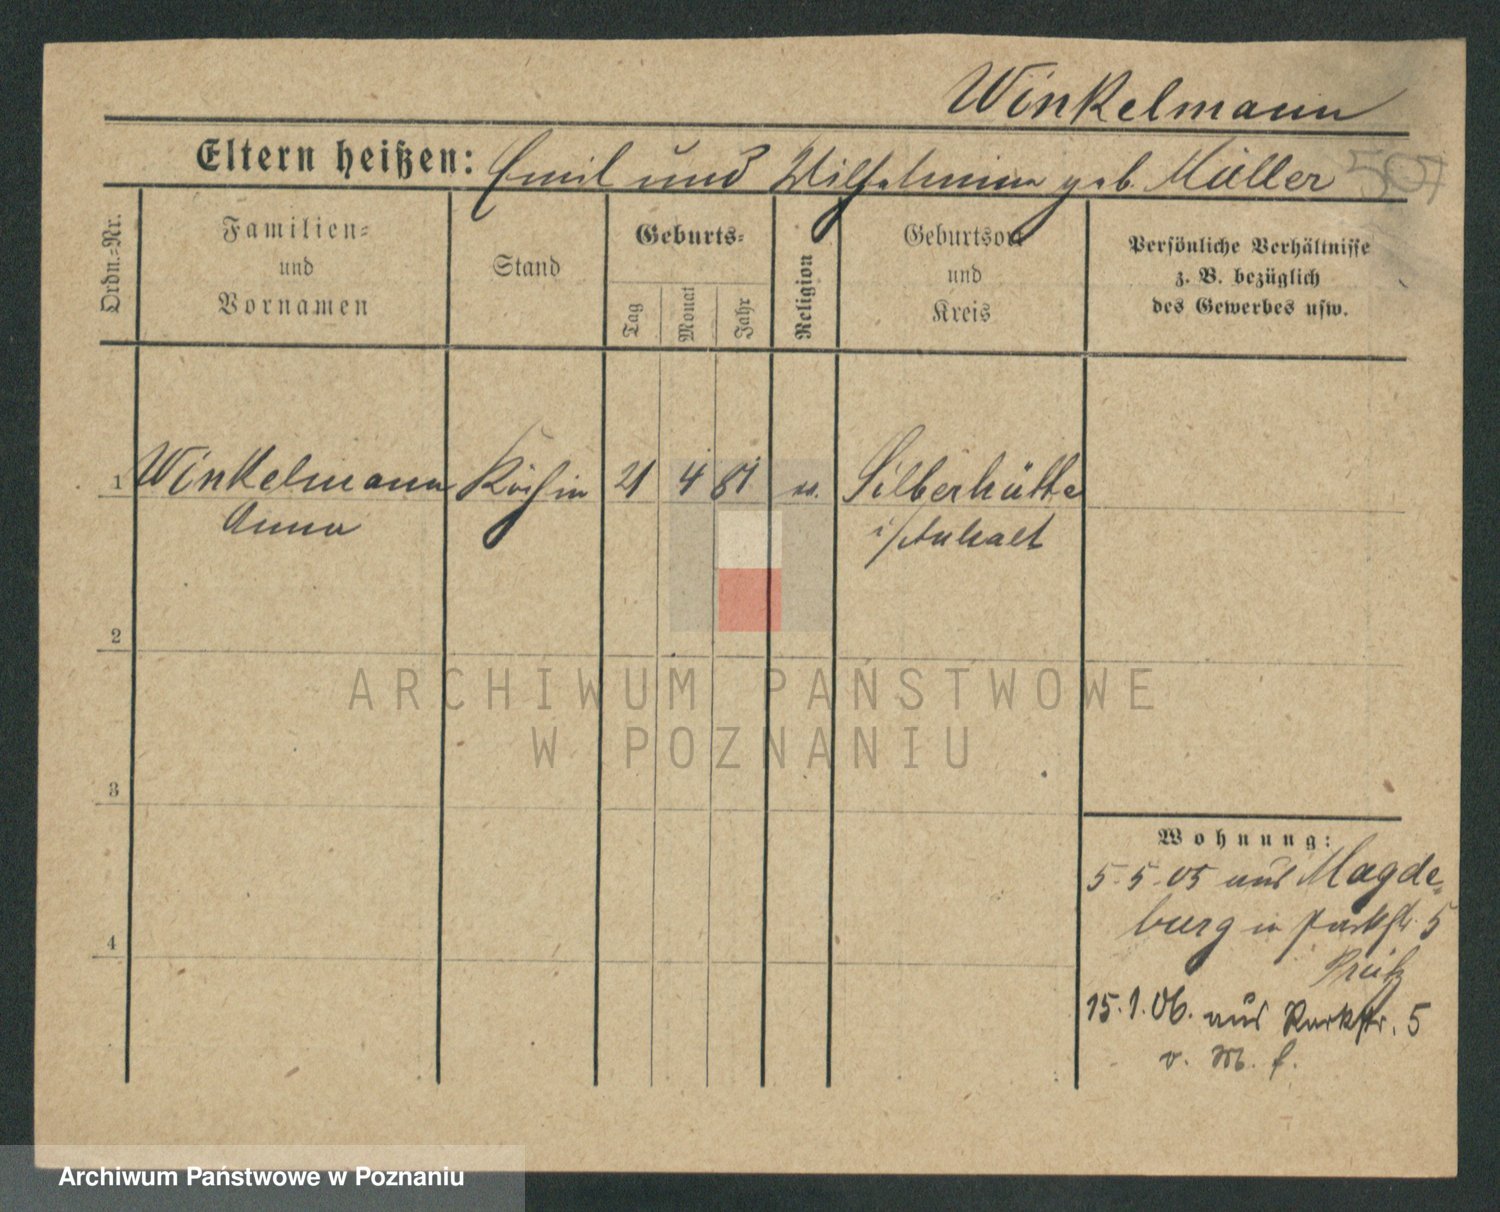 Winkelmann
Eltern heißen: Emil und Wilhelmine geb. Müller 507
Ordn.-Nr.
Familien-
und
Vornamen
Stand
Geburts-
Tag
Monat
Jahr
Religion
Geburtsort
und
Kreis
Persönliche Verhältnisse
z. B. bezüglich
des Gewerbes usw.
1 Winkelmann Köchin 21 4 81 Silberhütte
Anna i/Anhalt
2
ARCHIWUM PAŃSTWOWE
W POZNANIU
3
Wohnung:
5.5.05 aus Magde-
burg in Parkstr. 5
4
15.1.06. aus Parkstr. 5
v. M. f.
Archiwum Państwowe w Poznaniu